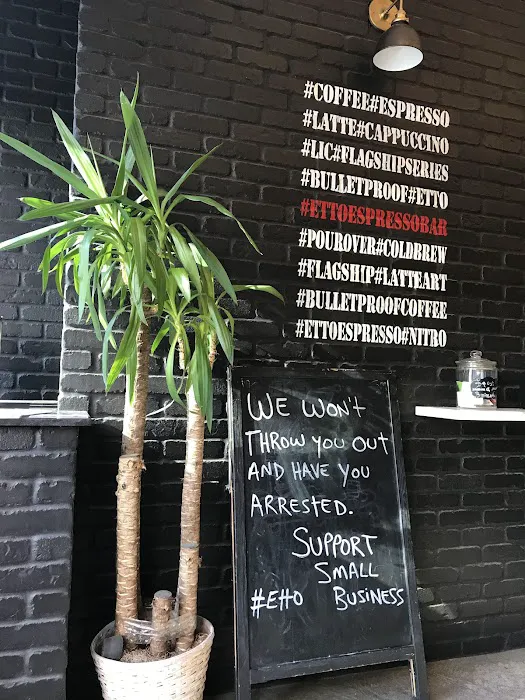 #COFFEE#ESPRESSO
#LATTE#CAPPUCCINO
#LIC#FLAGSHIPSERIES
#BULLETPROOF#ETTO
#ETTOESPRESSOBAR
#POUROVER#COLDBREW
#FLAGSHIP#LATTEART
#BULLETPROOFCOFFEE
#ETTOESPRESSO#NITRO
WE WON'T
THROW YOU OUT
AND HAVE YOU
ARRESTED.
SUPPORT
SMALL
#Etto BUSINESS